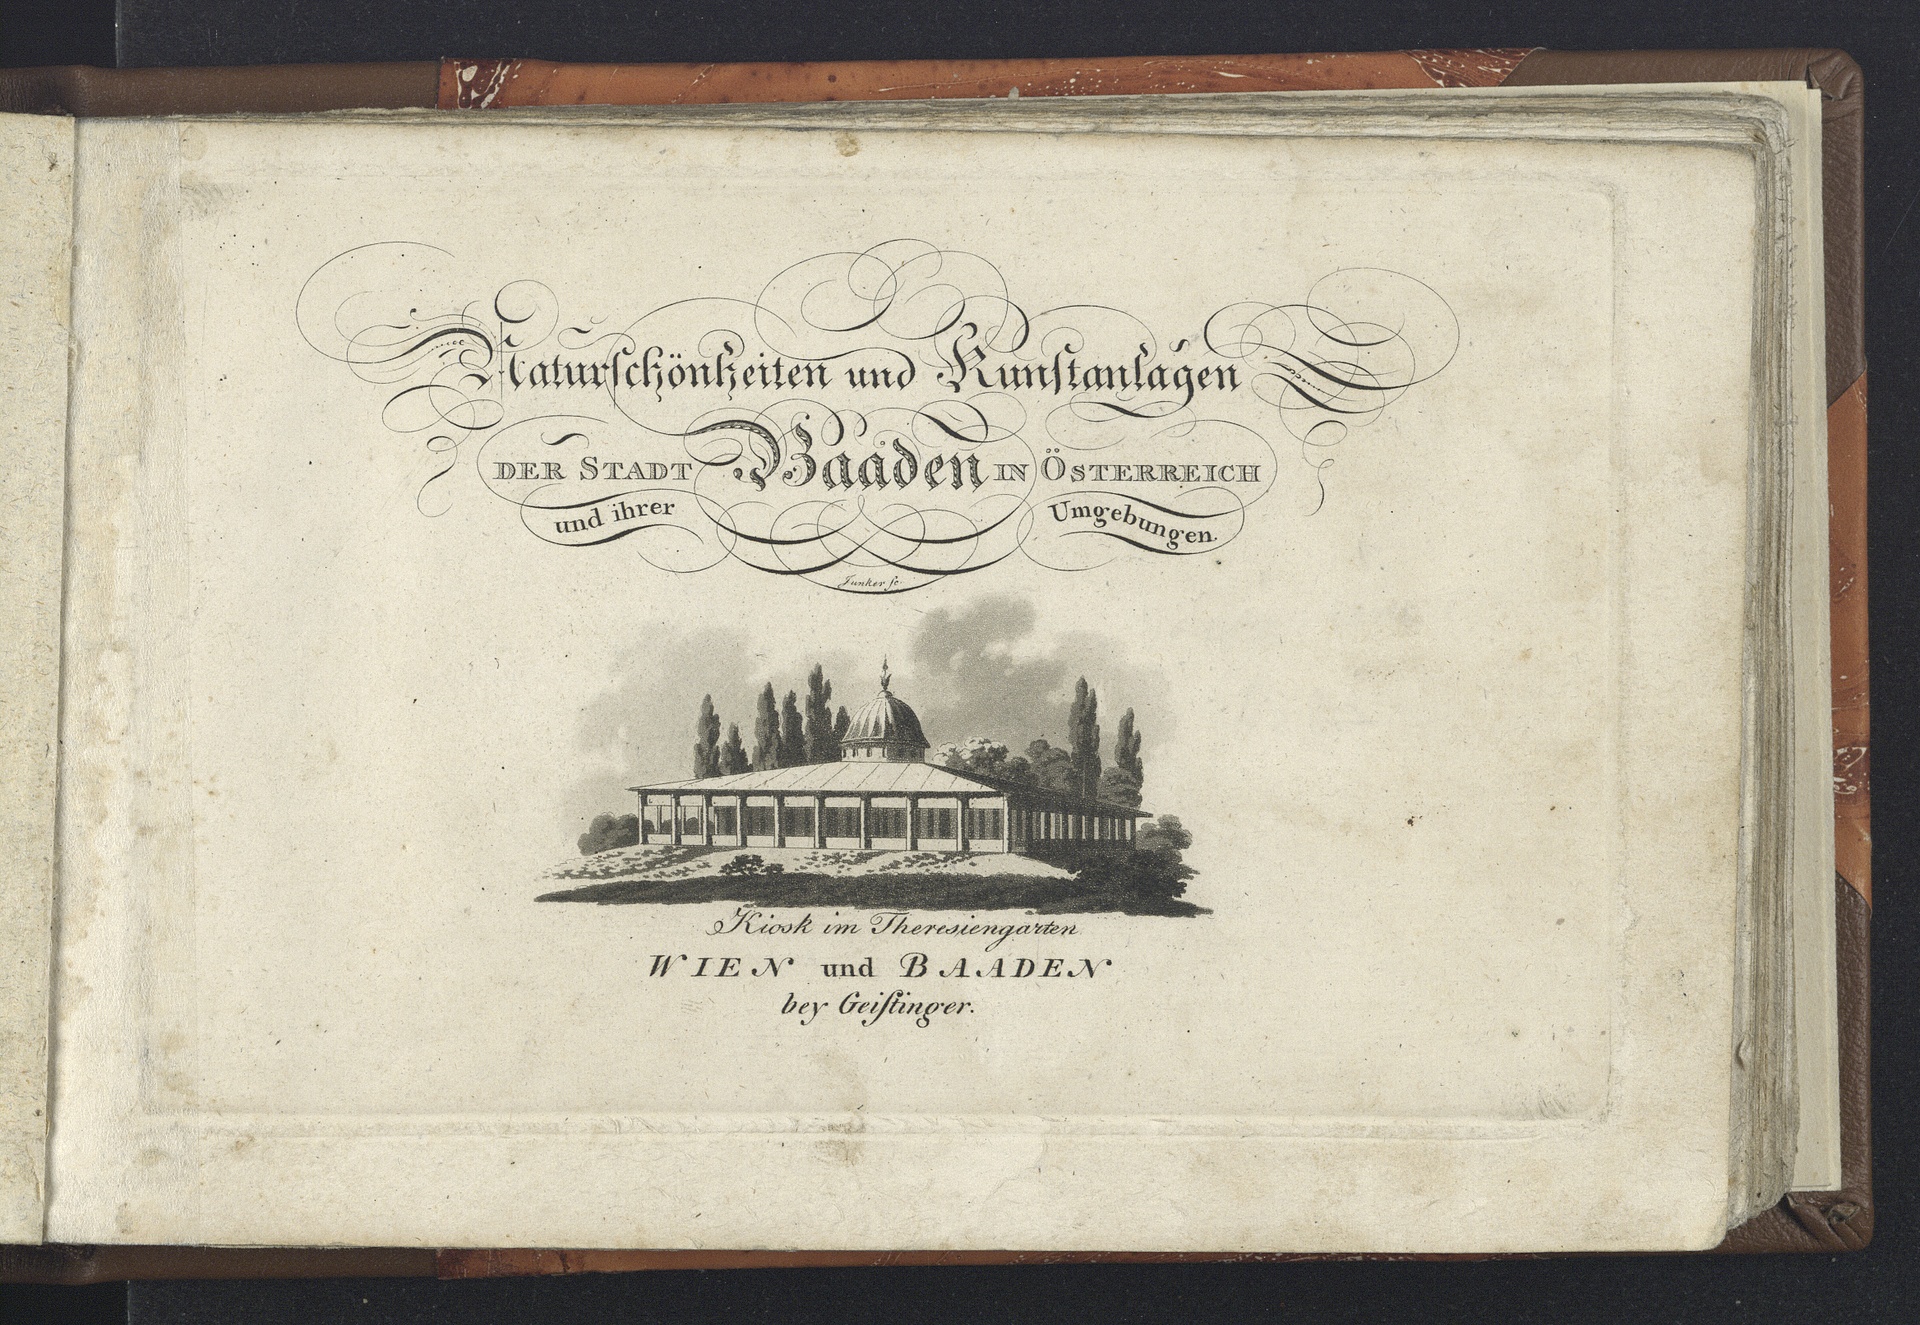 Naturſchönheiten und Kunſtanlagen
DER STADT Baaden IN ÖSTERREICH
und ihrer Umgebungen.
Junker ſc.
Kiosk im Theresiengarten
WIEN und BAADEN
bey Geiſtinger.